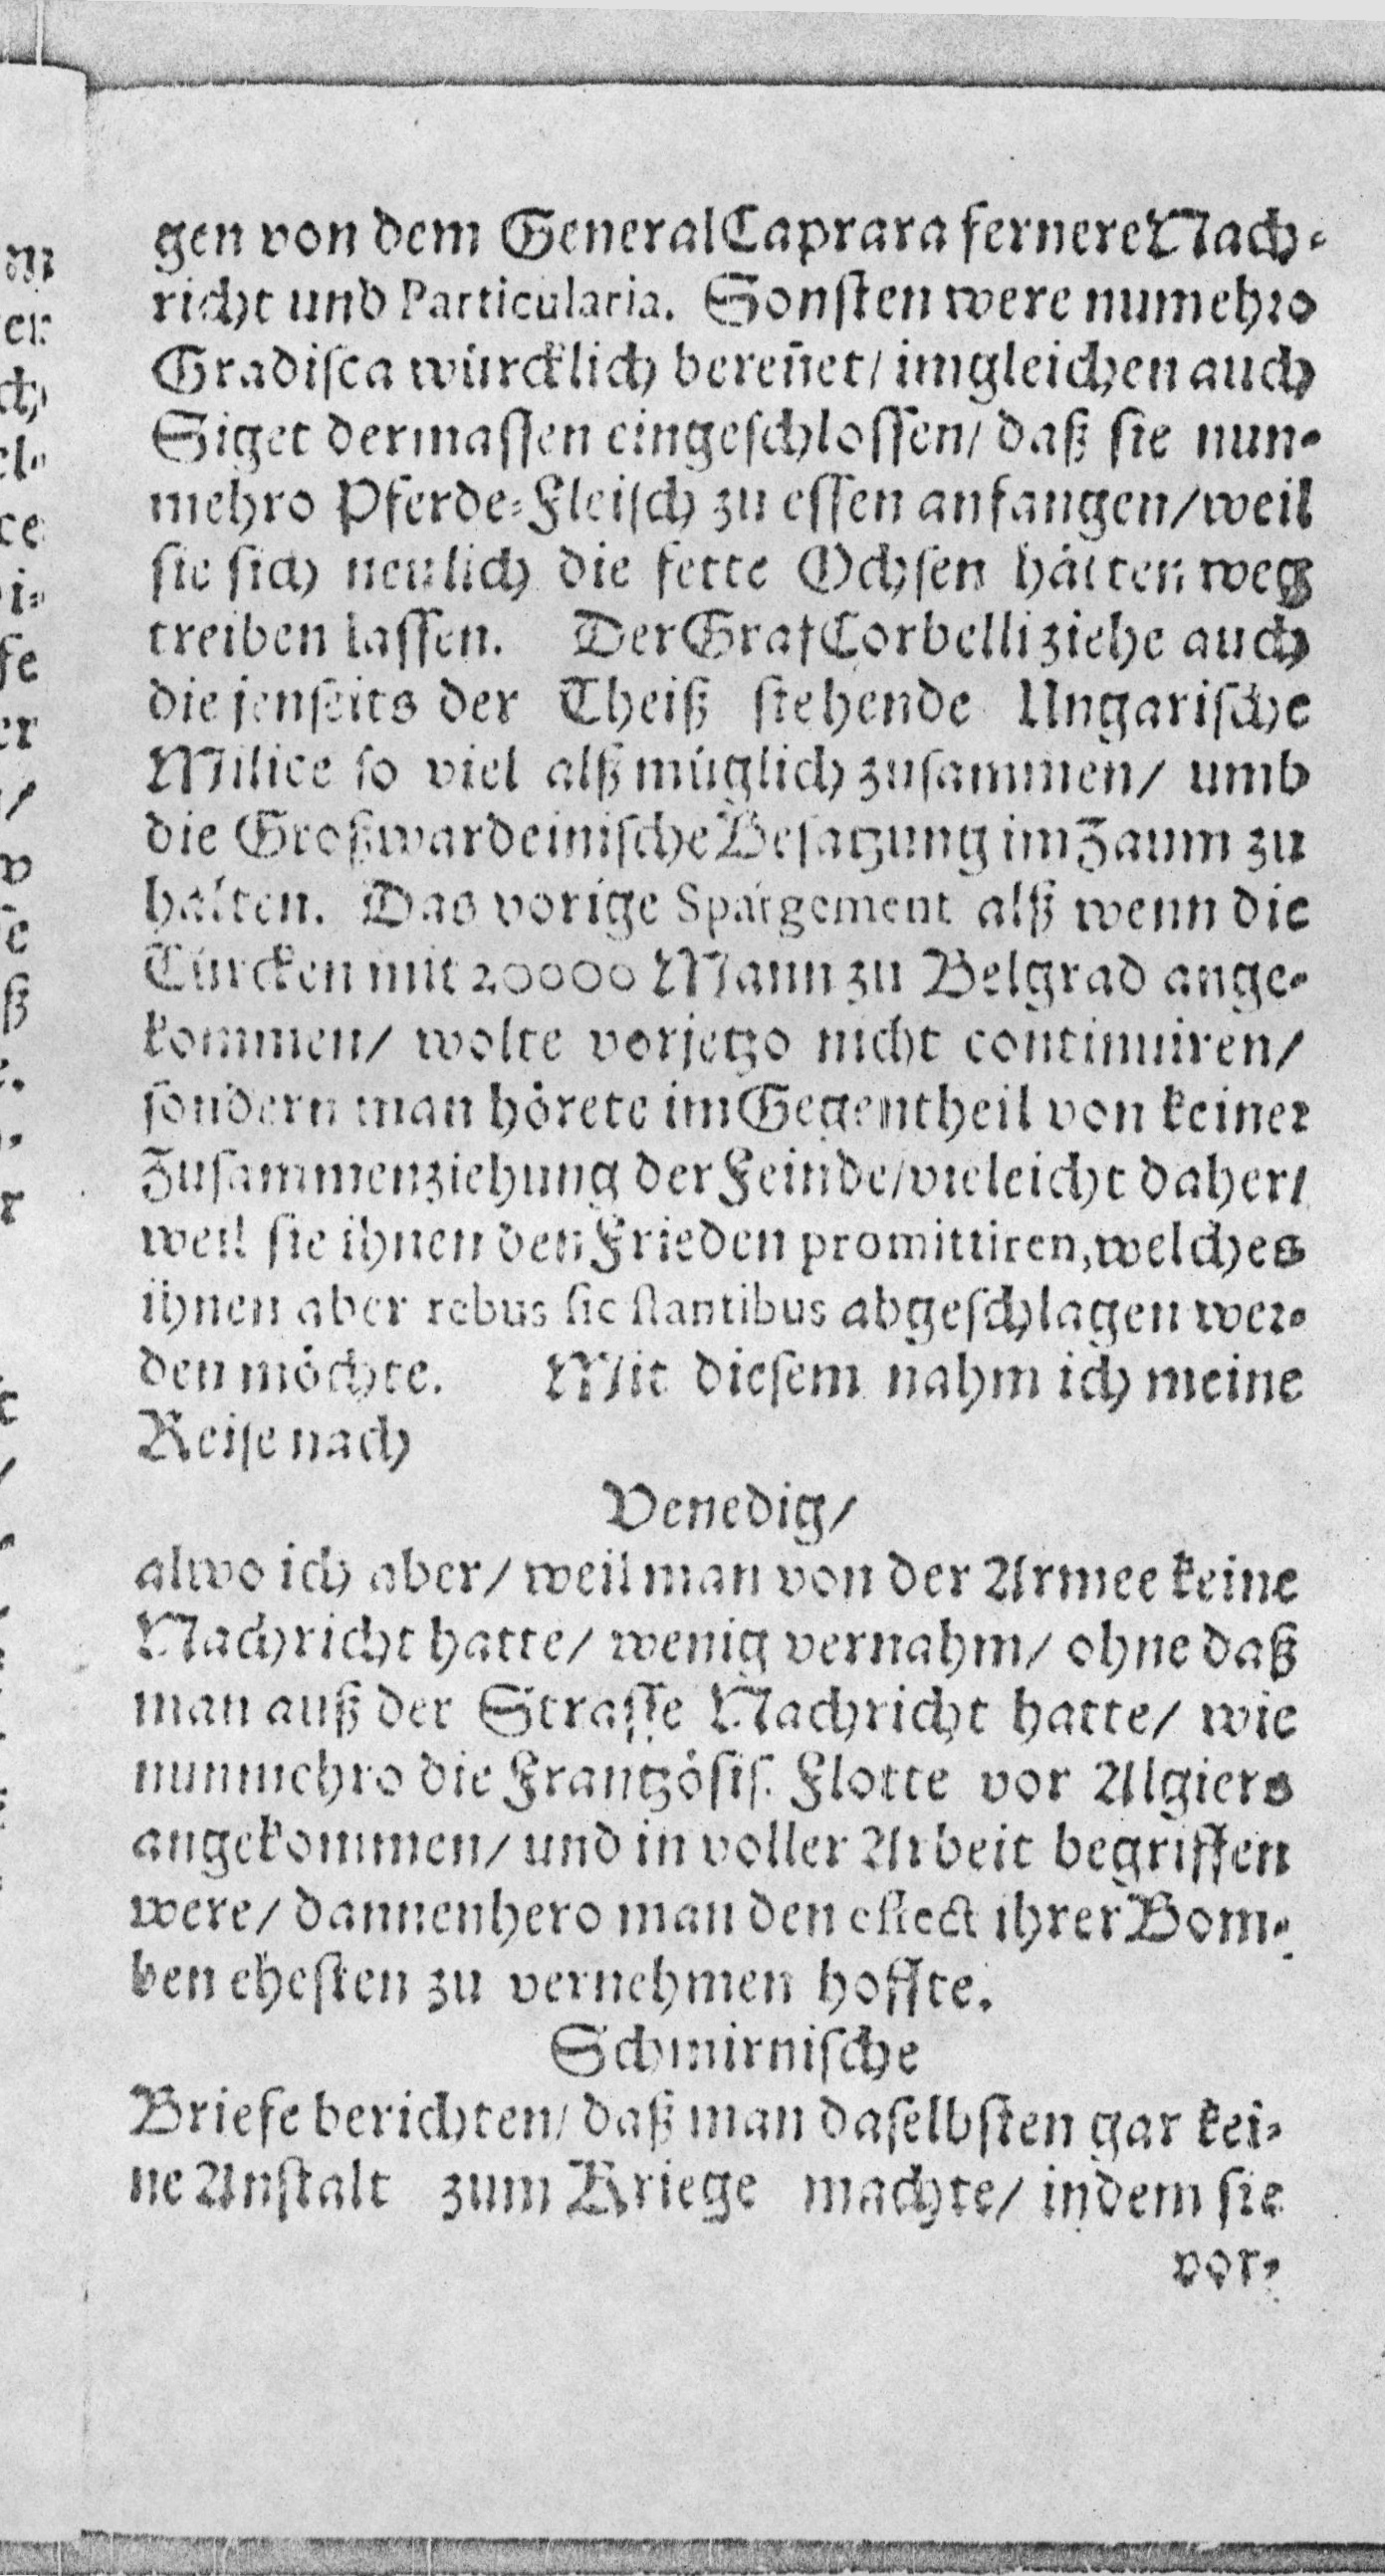 gen von dem General Caprara fernere Nach-
richt und Particularia. Sonsten were numehro
Gradisca würcklich bereñet/ imgleichen auch
Siget dermassen eingeschlossen/ daß sie nun-
mehro Pferde-Fleisch zu essen anfangen/ weil
sie sich neulich die fette Ochsen hätten weg
treiben lassen. Der Graf Corbelli ziehe auch
die jenseits der Theiß stehende Ungarische
Milice so viel alß müglich zusammen/ umb
die Großwardeinische Besatzung im Zaum zu
halten. Das vorige Spargement alß wenn die
Türcken mit 20000 Mann zu Belgrad ange-
kommen/ wolte vorjetzo nicht continuiren/
sondern man hörete im Gegentheil von keiner
Zusammenziehung der Feinde/ vieleicht daher/
weil sie ihnen den Frieden promittiren, welches
ihnen aber rebus sic stantibus abgeschlagen wer-
den möchte. Mit diesem nahm ich meine
Reise nach
Venedig/
alwo ich aber/ weil man von der Armee keine
Nachricht hatte/ wenig vernahm/ ohne daß
man auß der Strasse Nachricht hatte/ wie
nunmehro die Frantzösis. Flotte vor Algiers
angekommen/ und in voller Arbeit begriffen
were/ dannenhero man den effect ihrer Bom-
ben ehesten zu vernehmen hoffte.
Schmirnische
Briefe berichten/ daß man daselbsten gar kei-
ne Anstalt zum Kriege machte/ indem sie
vor-